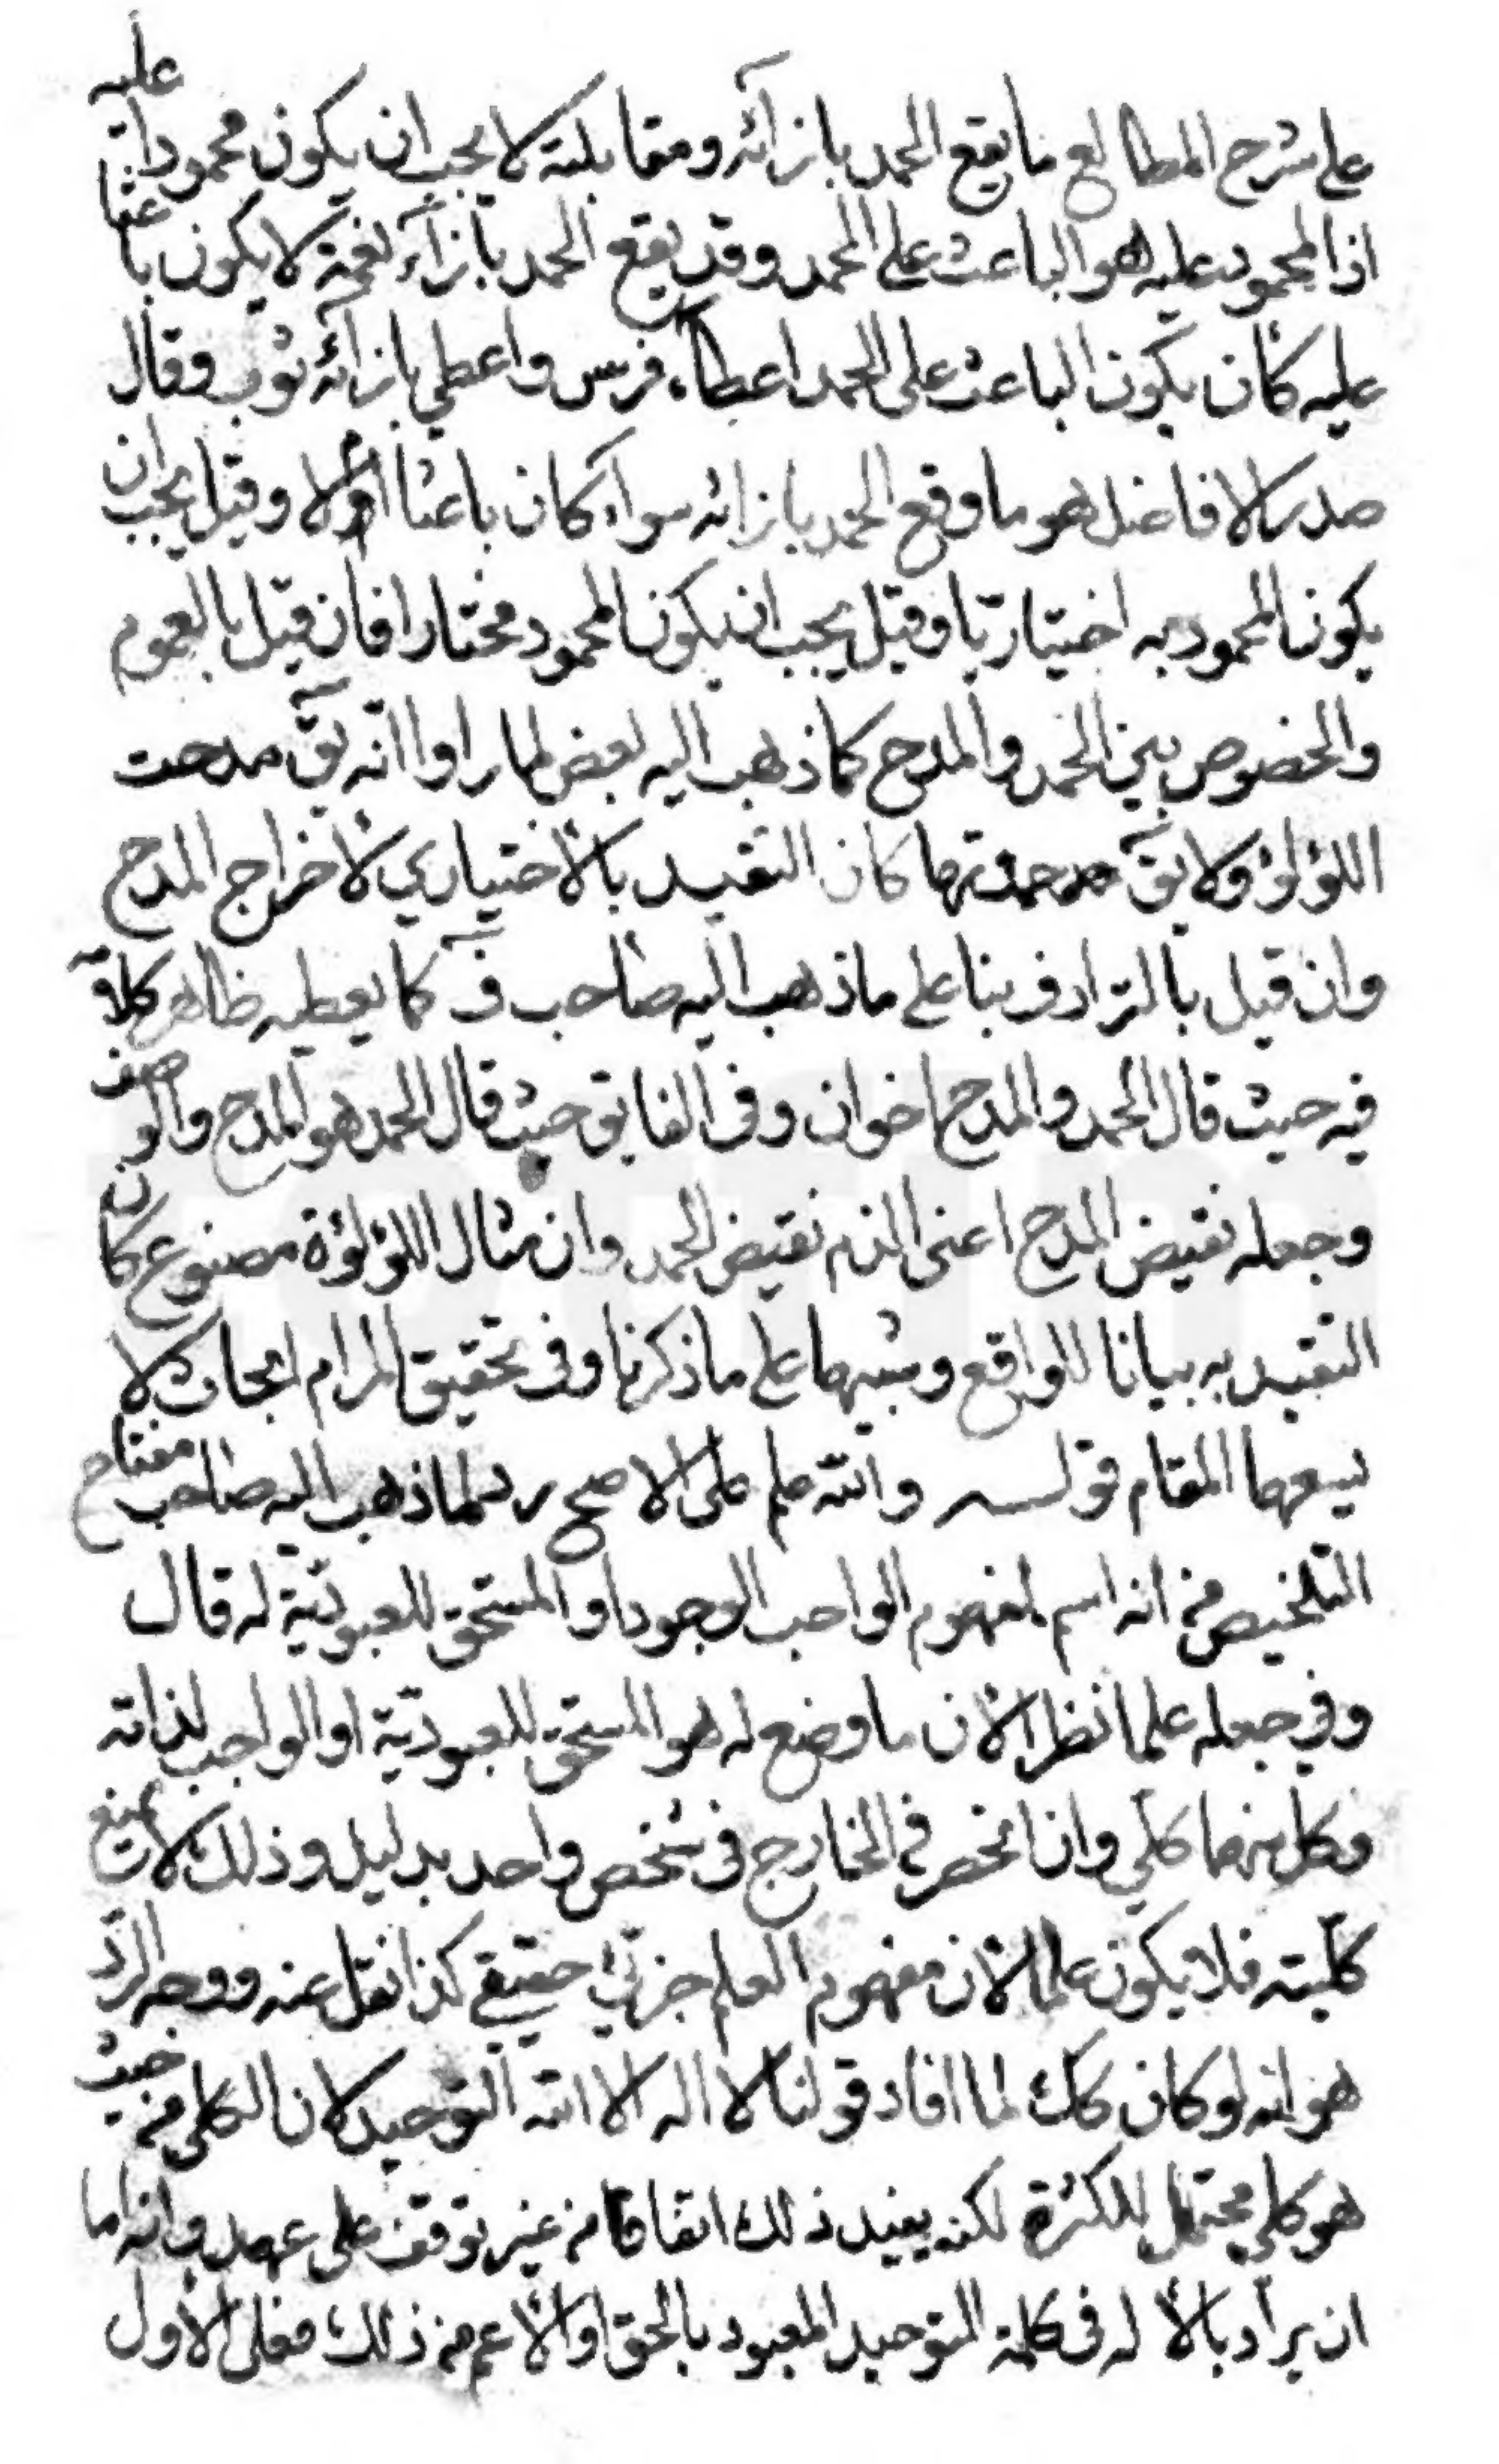 على شرح المطالع ما يقع الحمد بازائه ومقابلته لا يجب ان يكون محمودا عليه
اذ المحمود عليه هو الباعث على الحمد وقد يقع الحمد بازاء نعمة لا يكون باعثا
عليه كأن يكون الباعث على الحمد اعطاء فرس واعطي بازائه ثوب وقال
صدر الافاضل هو ما وقع الحمد بازائه سواء كان باعثا أو لا وقيل يجب ان
يكون المحمود به اختياريا وقيل يجب ان يكون المحمود مختارا فان قيل بالعموم
والخصوص بين الحمد والمدح كما ذهب اليه بعض لما راوا انّه يقّ مدحت
اللؤلؤ ولا يقّ حمدتها كان التقييد بالأختياري لأخراج المدح
وان قيل بالترادف بناء على ما ذهب اليه صاحب ف كما يعطيه ظاهر كلامه
فيه حيث قال الحمد والمدح اخوان وفى الفايق حيث قال الحمد هو المدح والوصف
وجعله نقيض المدح اعنى الذم نقيض الحمد وان مثال اللؤلؤة مصنوع كان
التقييد به بيانا للواقع وتنبيها على ما ذكرنا وفى تحقيق المرام ابحاث لا
يسعها المقام قولـــه والله علم على الاصح رد لما ذهب اليه صاحب مفتاح
التلخيص من انه اسم لمفهوم الواجب الوجود او المستحق للعبوديّة له قال
وفي جعله علما نظر لأن ما وضع له هو المستحق للعبوديّة او الواجب لذاته
وكل منهما كلّي وان انحصر في الخارج فى شخص واحد بدليل وذلك لا يمنع
كلّيته فلا يكون علما لأن مفهوم العلم جزئي حقيقي كذا نقل عنه ووجه الردّ
هو انه لو كان كك لما افاد قولنا لا اله الا الله التوحيد لان الكلى من حيث
هو كلي محتمل للكثرة لكنه يفيد ذلك اتفاقا من غير توقف على عهد وانه اما
ان يراد بالأله فى كلمة التوحيد المعبود بالحق او الأعم من ذلك فعلى الأول